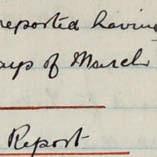 reported having
days of March
Report